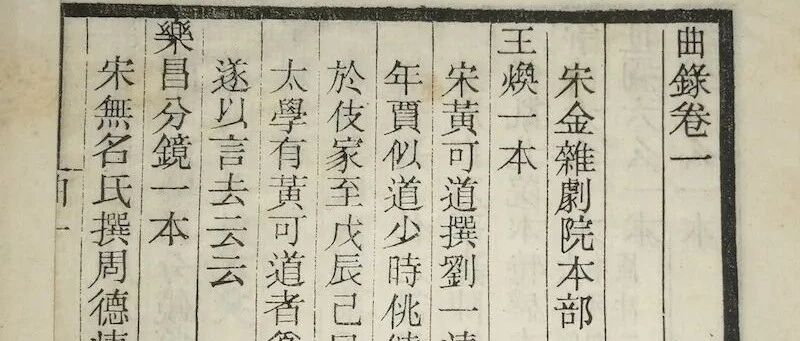 曲錄卷一
宋金雜劇院本部
王煥一本
宋黃可道撰劉一
年賈似道少時佻
於伎家至戊辰己
太學有黃可道者
遂以言去云云
樂昌分鏡一本
宋無名氏撰周德